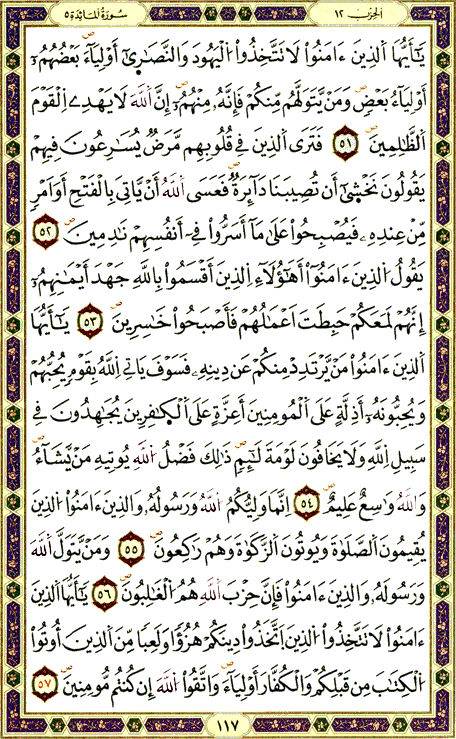 الحِزب ١٢
سُورَةُ المَائدَة ٥
يَٰٓأَيُّهَا اَ۬لذِينَ ءَامَنُواْ لَا تَتَّخِذُواْ اُ۬لْيَهُودَ وَالنَّصَٰر۪ىٰٓ أَوْلِيَآءَۖ بَعْضُهُمُۥٓ
أَوْلِيَآءُ بَعْضٖۖ وَمَنْ يَّتَوَلَّهُم مِّنكُمْ فَإِنَّهُۥ مِنْهُمُۥٓۖ إِنَّ اَ۬للَّهَ لَا يَهْدِے اِ۬لْقَوْمَ
اَ۬لظَّٰلِمِينَۖ ٥١ فَتَرَى اَ۬لذِينَ فِے قُلُوبِهِم مَّرَضٞ يُسَٰرِعُونَ فِيهِمْ
يَقُولُونَ نَخْش۪ىٰٓ أَن تُصِيبَنَا دَآئِرَةٞۖ فَعَسَى اَ۬للَّهُ أَنْ يَّاتِيَ بِالْفَتْحِ أَوَ اَمْرٖ
مِّنْ عِندِهِۦ فَيُصْبِحُواْ عَلَىٰ مَآ أَسَرُّواْ فِےٓ أَنفُسِهِمْ نَٰدِمِينَۖ ٥٢
يَقُولُ اُ۬لذِينَ ءَامَنُوٓاْ أَهَٰٓؤُلَآءِ اِ۬لذِينَ أَقْسَمُواْ بِاللَّهِ جَهْدَ أَيْمَٰنِهِمُۥٓ
إِنَّهُمْ لَمَعَكُمْ حَبِطَتَ اَعْمَٰلُهُمْ فَأَصْبَحُواْ خَٰسِرِينَۖ ٥٣ يَٰٓأَيُّهَا
اَ۬لذِينَ ءَامَنُواْ مَنْ يَّرْتَدِدْ مِنكُمْ عَن دِينِهِۦ فَسَوْفَ يَاتِے اِ۬للَّهُ بِقَوْمٖ يُحِبُّهُمْ
وَيُحِبُّونَهُۥٓ أَذِلَّةٍ عَلَى اَ۬لْمُومِنِينَ أَعِزَّةٍ عَلَى اَ۬لْكٰ۪فِرِينَ يُجَٰهِدُونَ فِے
سَبِيلِ اِ۬للَّهِ وَلَا يَخَافُونَ لَوْمَةَ لَآئِمٖۖ ذَٰلِكَ فَضْلُ اُ۬للَّهِ يُوتِيهِ مَنْ يَّشَآءُۖ
وَاللَّهُ وَٰسِعٌ عَلِيمٌۖ ٥٤ اِنَّمَا وَلِيُّكُمُ اُ۬للَّهُ وَرَسُولُهُۥ وَالذِينَ ءَامَنُواْ اُ۬لذِينَ
يُقِيمُونَ اَ۬لصَّلَوٰةَ وَيُوتُونَ اَ۬لزَّكَوٰةَ وَهُمْ رَٰكِعُونَۖ ٥٥ وَمَنْ يَّتَوَلَّ اَ۬للَّهَ
وَرَسُولَهُۥ وَالذِينَ ءَامَنُواْ فَإِنَّ حِزْبَ اَ۬للَّهِ هُمُ اُ۬لْغَٰلِبُونَۖ ٥٦ يَٰٓأَيُّهَا اَ۬لذِينَ
ءَامَنُواْ لَا تَتَّخِذُواْ اُ۬لذِينَ اَ۪تَّخَذُواْ دِينَكُمْ هُزُؤاٗ وَلَعِباٗ مِّنَ اَ۬لذِينَ أُوتُواْ
اُ۬لْكِتَٰبَ مِن قَبْلِكُمْ وَالْكُفَّارَ أَوْلِيَآءَۖ وَاتَّقُواْ اُ۬للَّهَ إِن كُنتُم مُّومِنِينَۖ ٥٧
١١٧